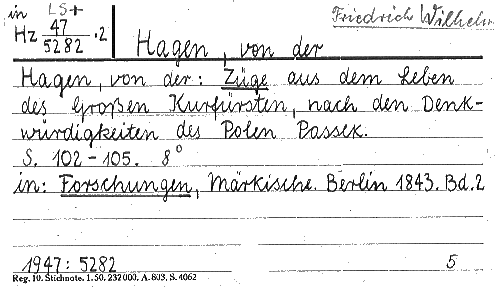 in LS+ Friedrich Wilhelm
Hz 47/5282 · 2 Hagen, von der
Hagen, von der: Züge aus dem Leben
des Großen Kurfürsten, nach den Denk-
würdigkeiten des Polen Passek.
S. 102-105. 8°
in: Forschungen, Märkische. Berlin 1843. Bd. 2
1947: 5282 5
Reg. 10. Stichnote. 1. 50. 232000. A. 803. S. 4062